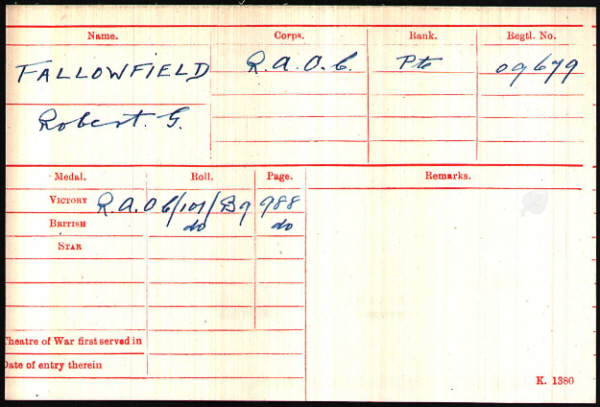 Name. Corps. Rank. Regtl. No.
FALLOWFIELD R.A.O.C. Pte 09679
Robert. G.
Medal. Roll. Page. Remarks.
VICTORY R.A.O.C/101/B9 988
BRITISH do do
STAR
Theatre of War first served in
Date of entry therein
K. 1380